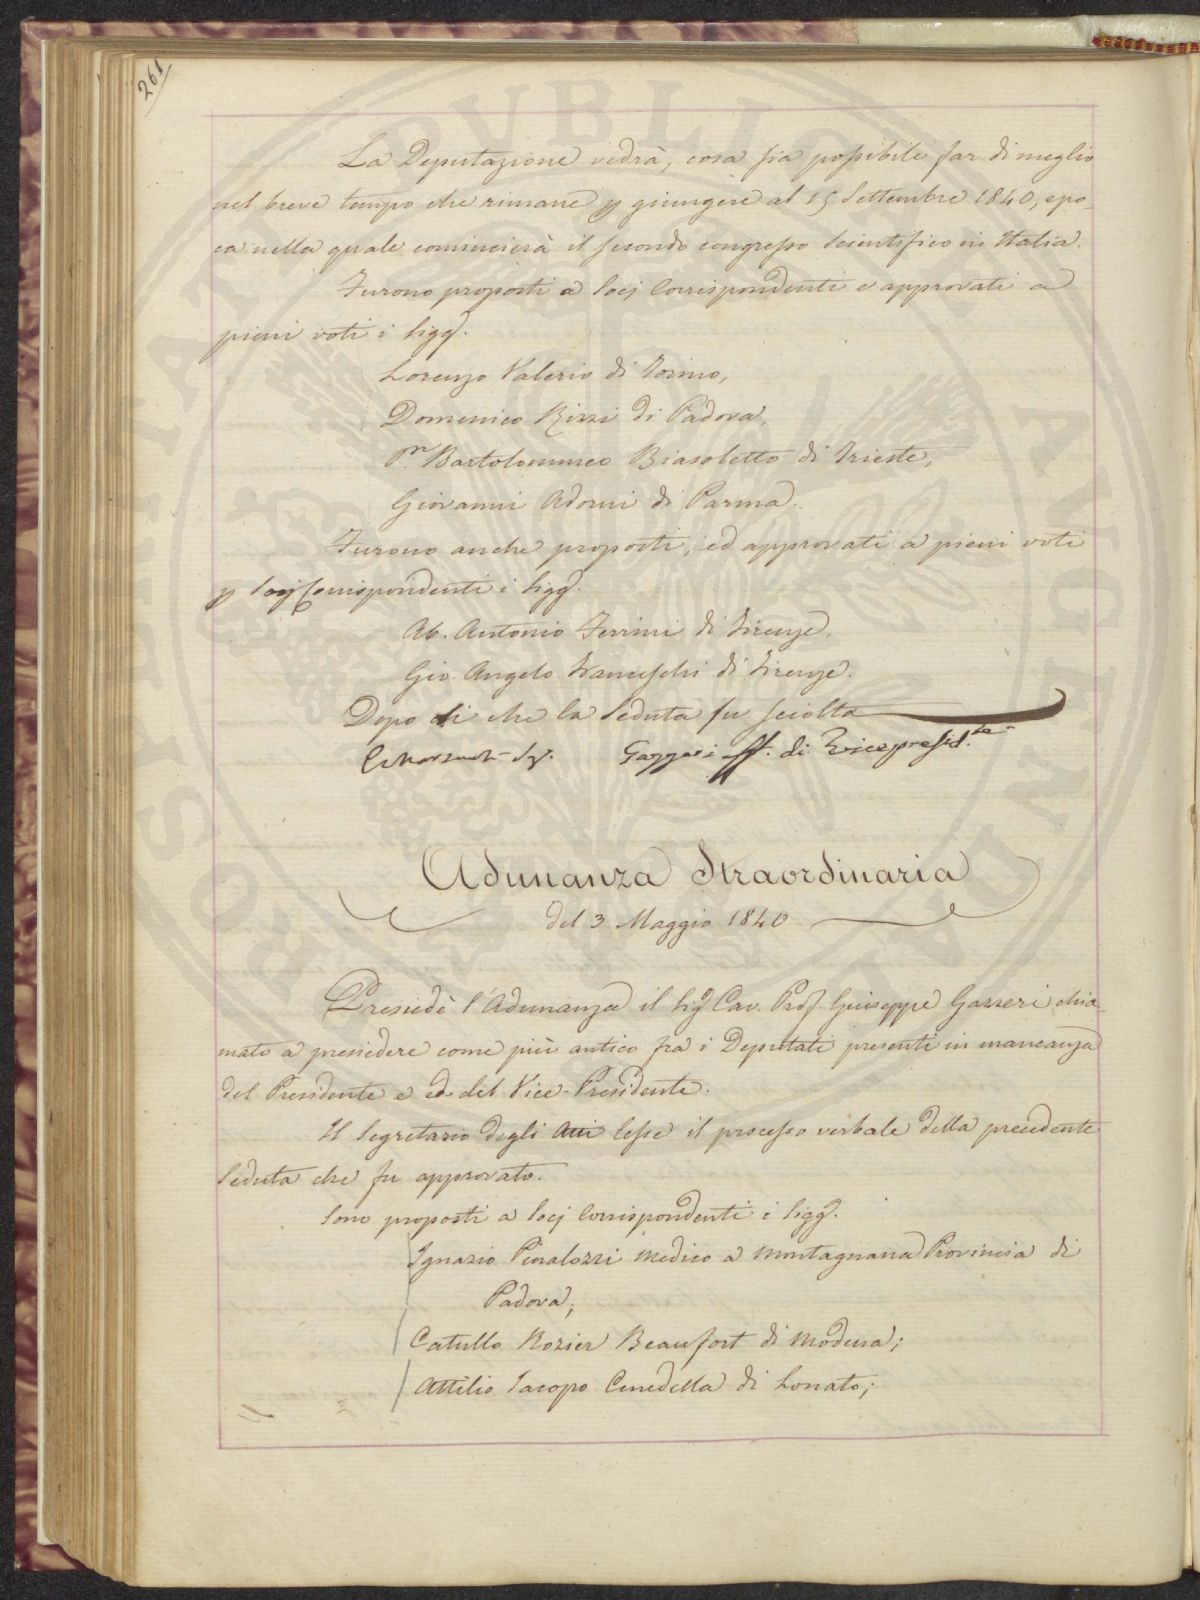 261
La Deputazione vedrà, cosa sia possibile far di meglio
nel breve tempo che rimane p giungere al 15 Settembre 1840, epo-
ca nella quale comincierà il secondo congresso Scientifico in Italia.
Furono proposti a Socj Corrispondenti e approvati a
pieni voti i Sigg.
Lorenzo Valerio di Torino,
Domenico Rizzi di Padova,
Bartolommeo Biasoletto di Trieste,
Giovanni Adorni di Parma.
Furono anche proposti, ed approvati a pieni voti
p Socj Corrispondenti i Sigg.
Ab. Antonio Ferrini di Firenze,
Gio. Angelo Franceschi di Firenze.
Dopo di che la Seduta fu sciolta
Gazzeri ff. di Vicepresid.te
Adunanza Straordinaria
del 3 Maggio 1840
Presiedè l'Adunanza il Sig Cav. Prof. Giuseppe Gazzeri chia-
mato a presiedere come più antico fra i Deputati presenti in mancanza
del Presidente e ed del Vice-Presidente.
Il Segretario degli Atti lesse il processo verbale della precedente
Seduta che fu approvato.
Sono proposti a Socj Corrispondenti i Sigg.
Ignazio Penalozzi Medico a Montagnana Provincia di
Padova;
Catullo Rozier Beaufort di Modena;
Attilio Jacopo Cenedella di Lonato;